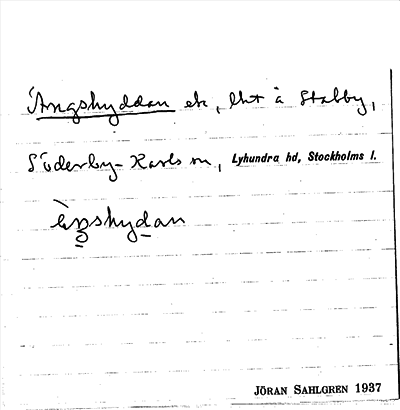 Ängshyddan ek, lht å Stabby,
Söderby-Karls sn, Lyhundra hd, Stockholms l.
èŋshydan
JÖRAN SAHLGREN 1937